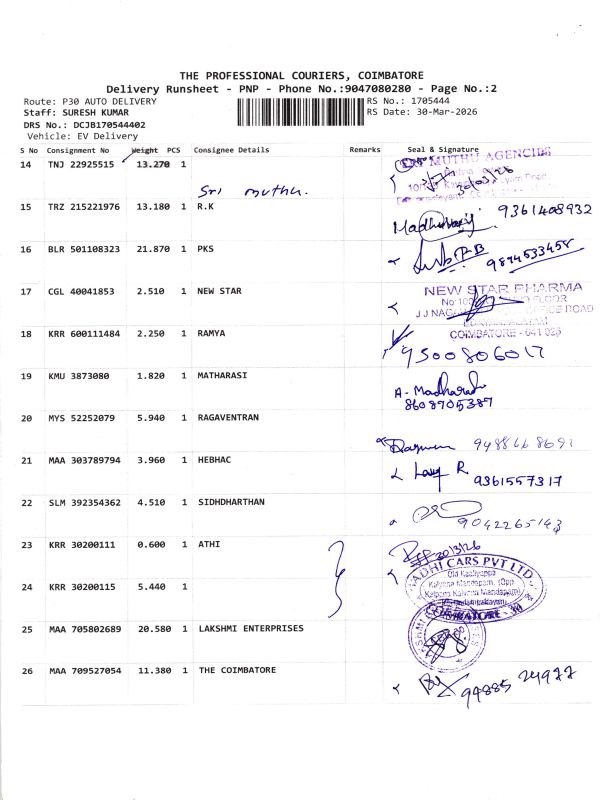 THE PROFESSIONAL COURIERS, COIMBATORE
Delivery Runsheet - PNP - Phone No.:9047080280 - Page No.:2
Route: P30 AUTO DELIVERY
RS No.: 1705444
Staff: SURESH KUMAR
RS Date: 30-Mar-2026
DRS No.: DCJB170544402
Vehicle: EV Delivery
S No Consignment No Weight PCS Consignee Details Remarks Seal & Signature
14 TNJ 22925515 13.270 1 Sri muthu. MUTHU AGENCIES
30/03/26
15 TRZ 215221976 13.180 1 R.K 9361408932
16 BLR 501108323 21.870 1 PKS 9894533458
17 CGL 40041853 2.510 1 NEW STAR NEW STAR PHARMA
FLOOR
J J NAGAR OFFICE ROAD
COIMBATORE - 641 028
18 KRR 600111484 2.250 1 RAMYA 9500806017
19 KMU 3873080 1.820 1 MATHARASI A- Madharasi
8608705387
20 MYS 52252079 5.940 1 RAGAVENTRAN
21 MAA 303789794 3.960 1 HEBHAC 9361557317
22 SLM 392354362 4.510 1 SIDHDHARTHAN 9042265143
23 KRR 30200111 0.600 1 ATHI 30/3/26
CARS PVT LTD
Kalyana Mandapam, (Opp)
Kalpana Kalyana Mandapam)
COIMBATORE
24 KRR 30200115 5.440 1
25 MAA 705802689 20.580 1 LAKSHMI ENTERPRISES
26 MAA 709527054 11.380 1 THE COIMBATORE 94885 24977